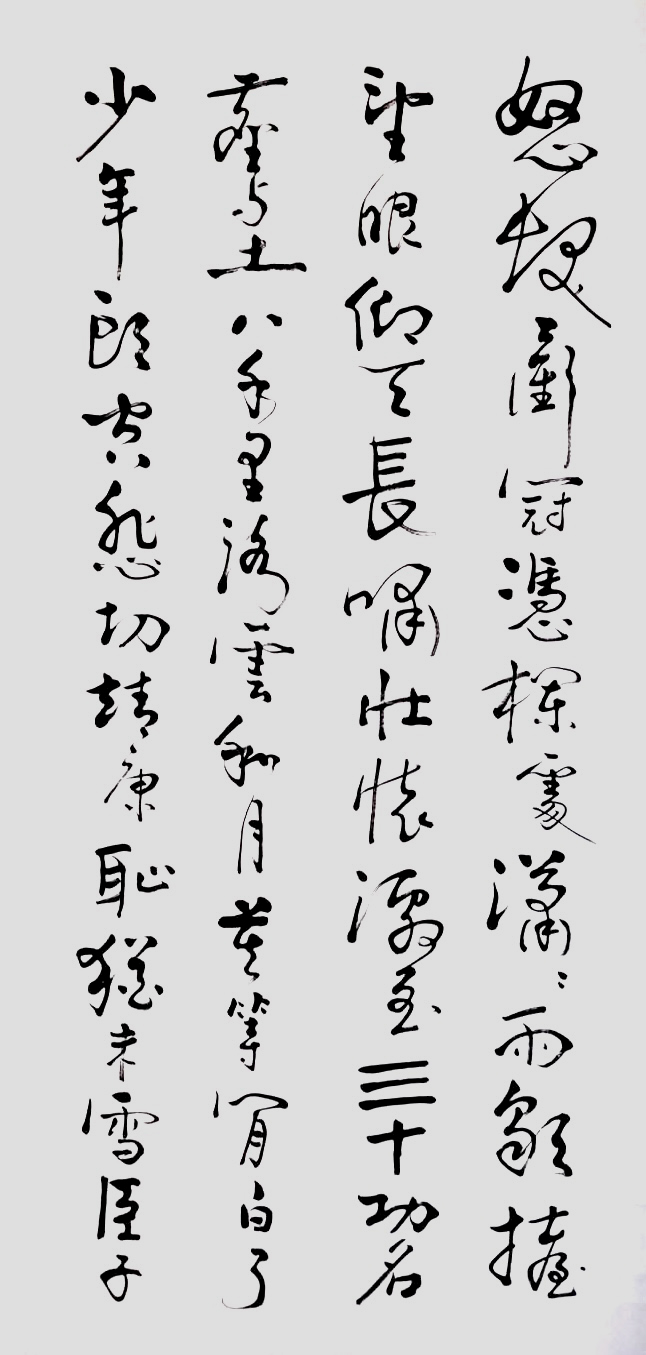 怒髮衝冠憑欄處瀟〻雨歇擡
望眼仰天長嘯壯懷激烈三十功名
塵与土八千里路雲和月莫等閒白了
少年頭空悲切靖康恥猶未雪臣子